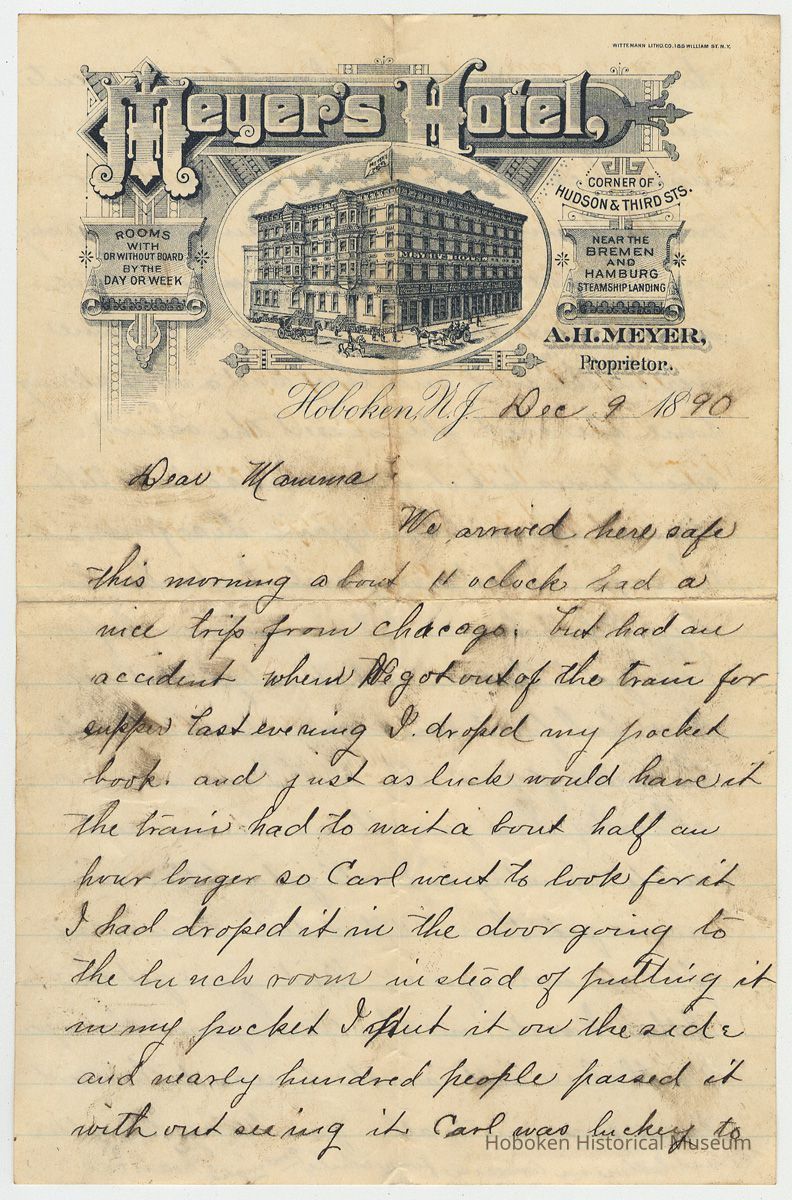 WITTEMANN LITHO.CO. 185 WILLIAM ST. N.Y.
Meyer's Hotel,
CORNER OF
HUDSON & THIRD STS.
ROOMS
WITH
OR WITHOUT BOARD
BY THE
DAY OR WEEK
MEYER'S HOTEL
NEAR THE
BREMEN
AND
HAMBURG
STEAMSHIP LANDING
A.H. MEYER,
Proprietor.
Hoboken, N.J. Dec 9 1890
Dear Mamma
We arrived here safe
this morning a bout 11 oclock had a
nice trip from chacogo. but had an
accident when We got out of the train for
supper last evening I droped my pocket
book. and just as luck would have it
the train had to wait a bout half an
hour longer so Carl went to look for it
I had droped it in the door going to
the lunch room instead of putting it
in my pocket I put it on the side
and nearly hundred people passed it
with out seeing it Carl was luckey to
Hoboken Historical Museum